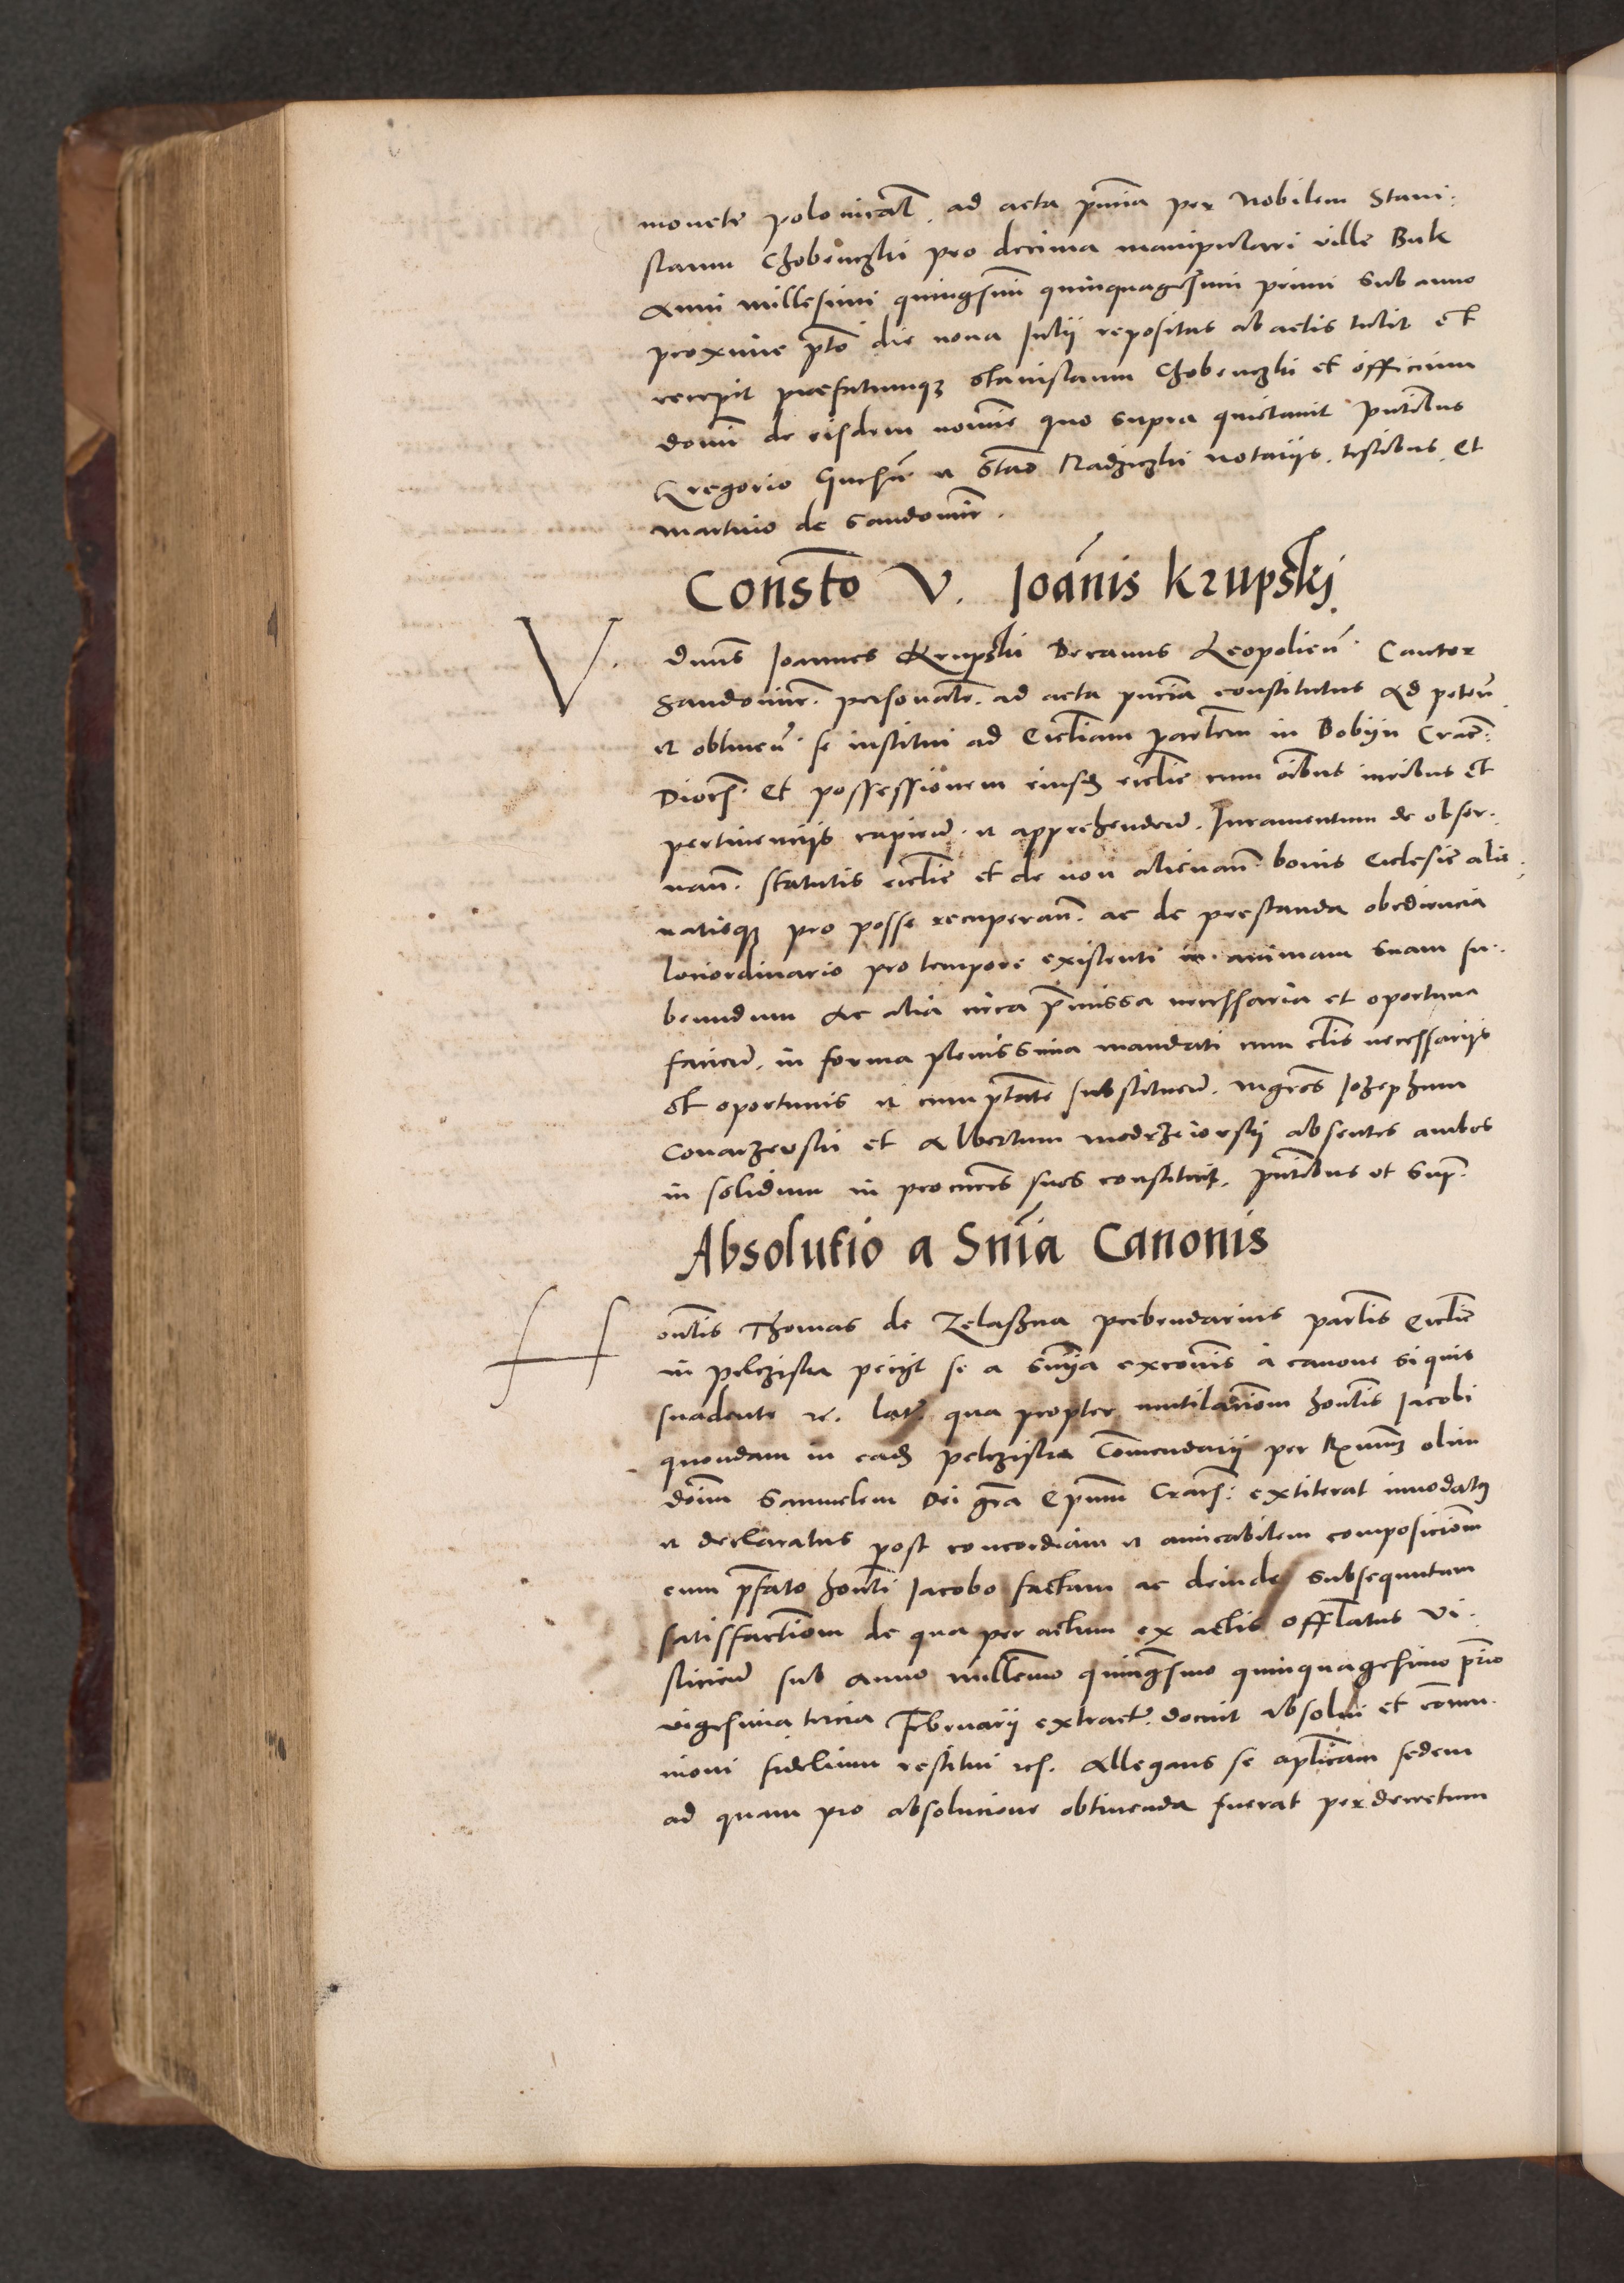 monete polonicał. ad acta pñcia per Nobilem Stani:
slaum Chobenczki pro decima manipulari ville Buk
Anni millesimi quingsimi quinquagesimi primi sub anno
proxime pto die nona Julij repositas ab actis tulit et
recepit praefatumqz Stanislaum Chobenczki et officium
domi de eisdem nomine quo supra quietauit pñtibus
Gregorio et Stao Radziczki notariis. testibus. Et
martino de Sandomir.
Consto V. Joannis Krupski
V. dnus Joannes Krupski Decanus Leopolien̄. Cantor
Sandomir. personalr. ad acta pñcia constitutus Ad peteñ
et obtineñ. se institui ad Eccliam parlem in Dobijn Crac:
Dioces. Et possessionem eiusd ecclie cum oibus iuribus et
pertinenciis capien̄. et apprehenden̄. Iuramentum de obser.
uan̄. statutis ecclie et de non alienan̄. bonis Ecclesie alie
natisqz pro posse recuperan̄. ac de prestanda obediencia
lociordinario pro tempore existenti in animam suam su.
beundum Ac alia circa p̄missa necessaria et oportuna
facien̄. in forma plenissima mandati cum clis necessariis
et oportunis et cum ptate substituen̄. mgros Jozephum
Conarzewski et Albertum modrzeiewskij absentes ambos
in solidum in procures suos constituit. pñtibus ut sup.
Absolutio a Snia Canonis
H onlis Thomas de Zelaszna prebendarius parlis Ecclie
in pelcziska peciit se a Snia excomnis a canone si quis
suadente etc. lat. qua propter mutilaciom honlis Jacobi
quondam in ead pelcziska Comendarij per Rxmum olim
doim Samuelem Dei gra Epum Cracs: extiterat innodatus
et declaratus post concordiam et amicabilem composiciom
cum p̄fato honli Jacobo factam ac deinde subsequutam
satisfactiom de qua per actum ex actis Offlatus Vi.
slicien̄ sub Anno millemo quingsmo quinquagesimo prio
vigesima tercia Februarij extract. docuit absolui et comu.
nioni fidelium restitui etc. Allegans se aplicam sedem
ad quam pro absolucione obtinenda fuerat per decretum